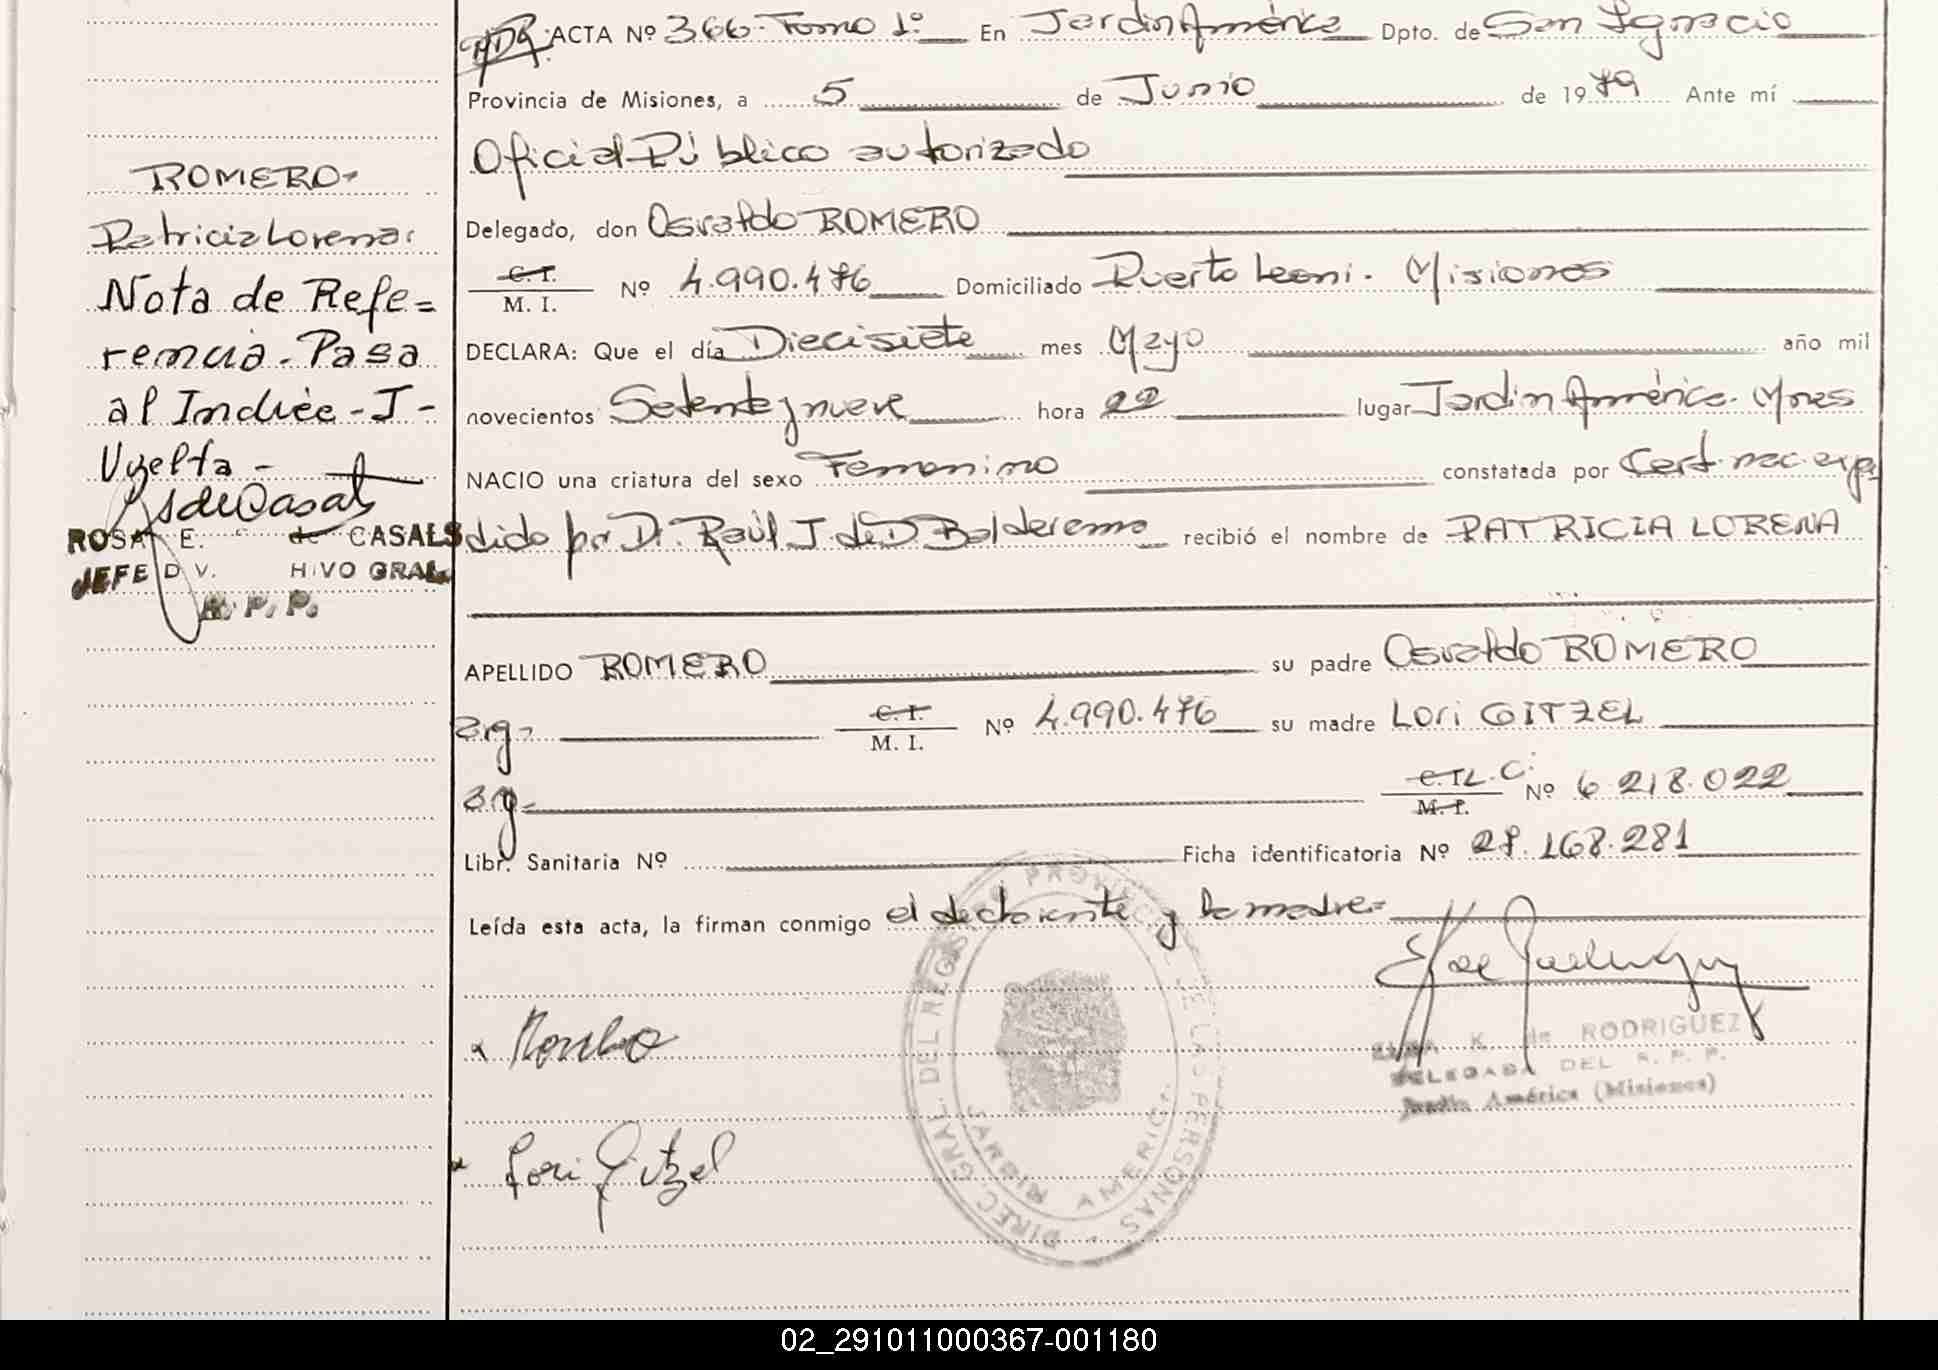 ACTA Nº 366- Tomo 1º En Jardin América Dpto. de San Ignacio
Provincia de Misiones, a 5 de Junio de 1979 Ante mí
Oficial Público autorizado
Delegado, don Osvaldo ROMERO
C.I.
M. I. Nº 4.990.476 Domiciliado Puerto Leoni. Misiones
DECLARA: Que el día Diecisiete mes Mayo año mil
novecientos Setenta y nueve hora 22 lugar Jardin América. Mnes
NACIO una criatura del sexo Femenino constatada por Cert. nac. expe
dido por Dr. Raúl J. de D Balderrama recibió el nombre de PATRICIA LORENA
APELLIDO ROMERO su padre Osvaldo ROMERO
arg- C.I.
M. I. Nº 4.990.476 su madre Lori GITZEL
arg- C.I. L.C.
M.I. Nº 6.218.022
Libr. Sanitaria Nº Ficha identificatoria Nº 27.168.281
Leída esta acta, la firman conmigo el declarante y la madre=
Lori Gitzel
K. de RODRIGUEZ
DELEGADA DEL R. P. P.
Jardín América (Misiones)
DIREC. GRAL. DEL REGISTRO PROVINCIAL DE LAS PERSONAS
JARDIN AMERICA
ROMERO-
Patricia Lorena:
Nota de Refe=
rencia-Pasa
al Indice-J-
Vuelta-
ROSA E. de CASALS
JEFE DIV. ARCHIVO GRAL.
R. P. P.
02_291011000367-001180